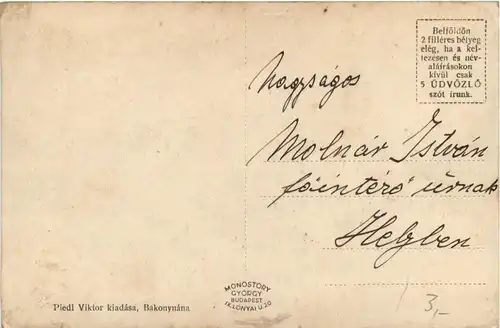 Belföldön
2 filléres bélyeg
elég, ha a kel-
tezésen és név-
aláírásokon
kívül csak
5 ÜDVÖZLŐ
szót írunk.
Nagyságos
Molnár István
főintéző úrnak
Helyben
Piedl Viktor kiadása, Bakonynána
MONOSTORY
GYÖRGY
BUDAPEST
IX. LÓNYAI U.
3,-